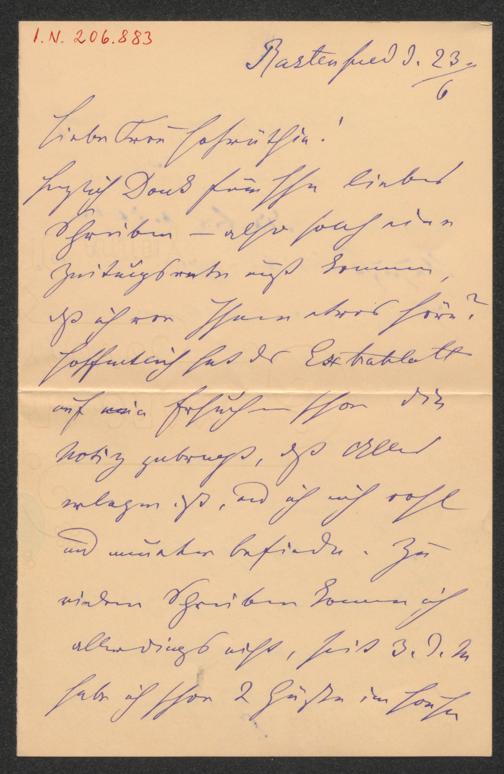 I.N. 206.883
Rastenfeld d. 23/6
Liebe Frau Hofräthin!
Herzlich Dank für Ihr liebes
Schreiben – also auch eine
Zeitungsente muß kommen,
daß ich von Ihnen etwas höre?
Hoffentlich hat das Extrablatt
auf mein Ersuchen schon die
Notiz gebracht, daß Alles
erlogen ist, und ich mich wohl
und munter befinde. Zu
vielem Schreiben komme ich
allerdings nicht, seit 3. d. M
habe ich schon 2 Gäste im Hause